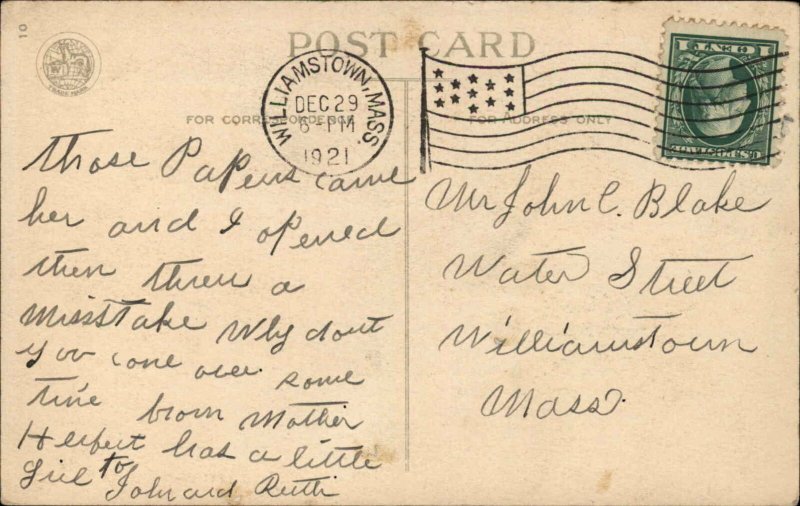 10
POST CARD
TRADE MARK
FOR CORRESPONDENCE
FOR ADDRESS ONLY
WILLIAMSTOWN, MASS.
DEC 29
6-PM
1921
U.S. POSTAGE
1 CENT 1
those Papers came
her and I opened
them threu a
Misstake Why dont
you come over some
time from Mother
has a little
Girl to John and Ruth
Mr John C. Blake
Water Street
Williamstown
Mass.